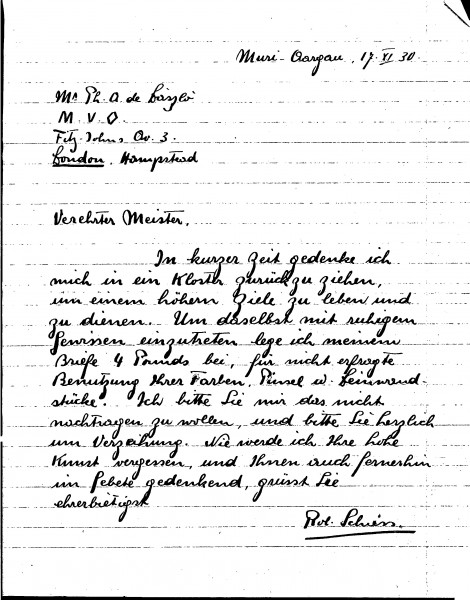 Muri-Aargau, 17. XI 30.
Mr Ph. A. de László
M. V. O.
Fitz. Johns. Av. 3.
London. Hampstead
Verehrter Meister.
In kurzer Zeit gedenke ich
mich in ein Kloster zurückzuziehen,
um einem höhern Ziele zu leben und
zu dienen. Um daselbst mit ruhigem
Gewissen einzutreten lege ich meinem
Briefe 4 Pounds bei, für nicht erfragte
Benutzung Ihrer Farben, Pinsel u. Leinwand-
stücke. Ich bitte Sie mir das nicht
nachtragen zu wollen, und bitte Sie herzlich
um Verzeihung. Nie werde ich Ihre hohe
Kunst vergessen, und Ihnen auch fernerhin
im Gebete gedenkend, grüsst Sie
ehrerbietigst
Rob. Schiess.